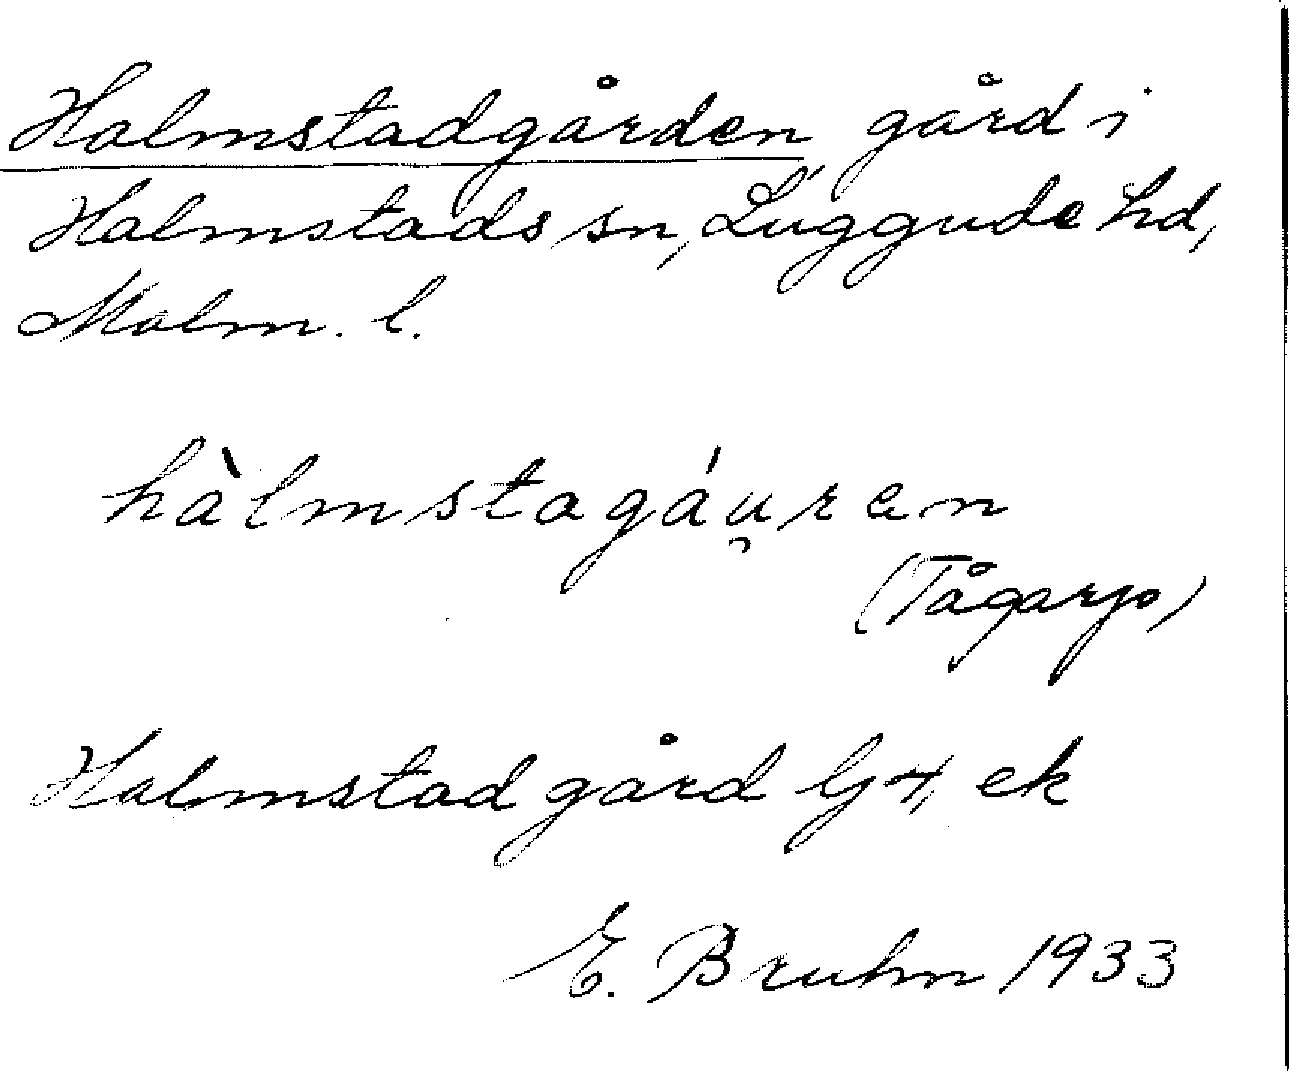 Halmstadgården gård i
Halmstads sn, Luggude hd,
Malm. l.
hàlmstagáu̯ren
(Tågarp)
Halmstad gård Gj 4, ek
E. Bruhn 1933